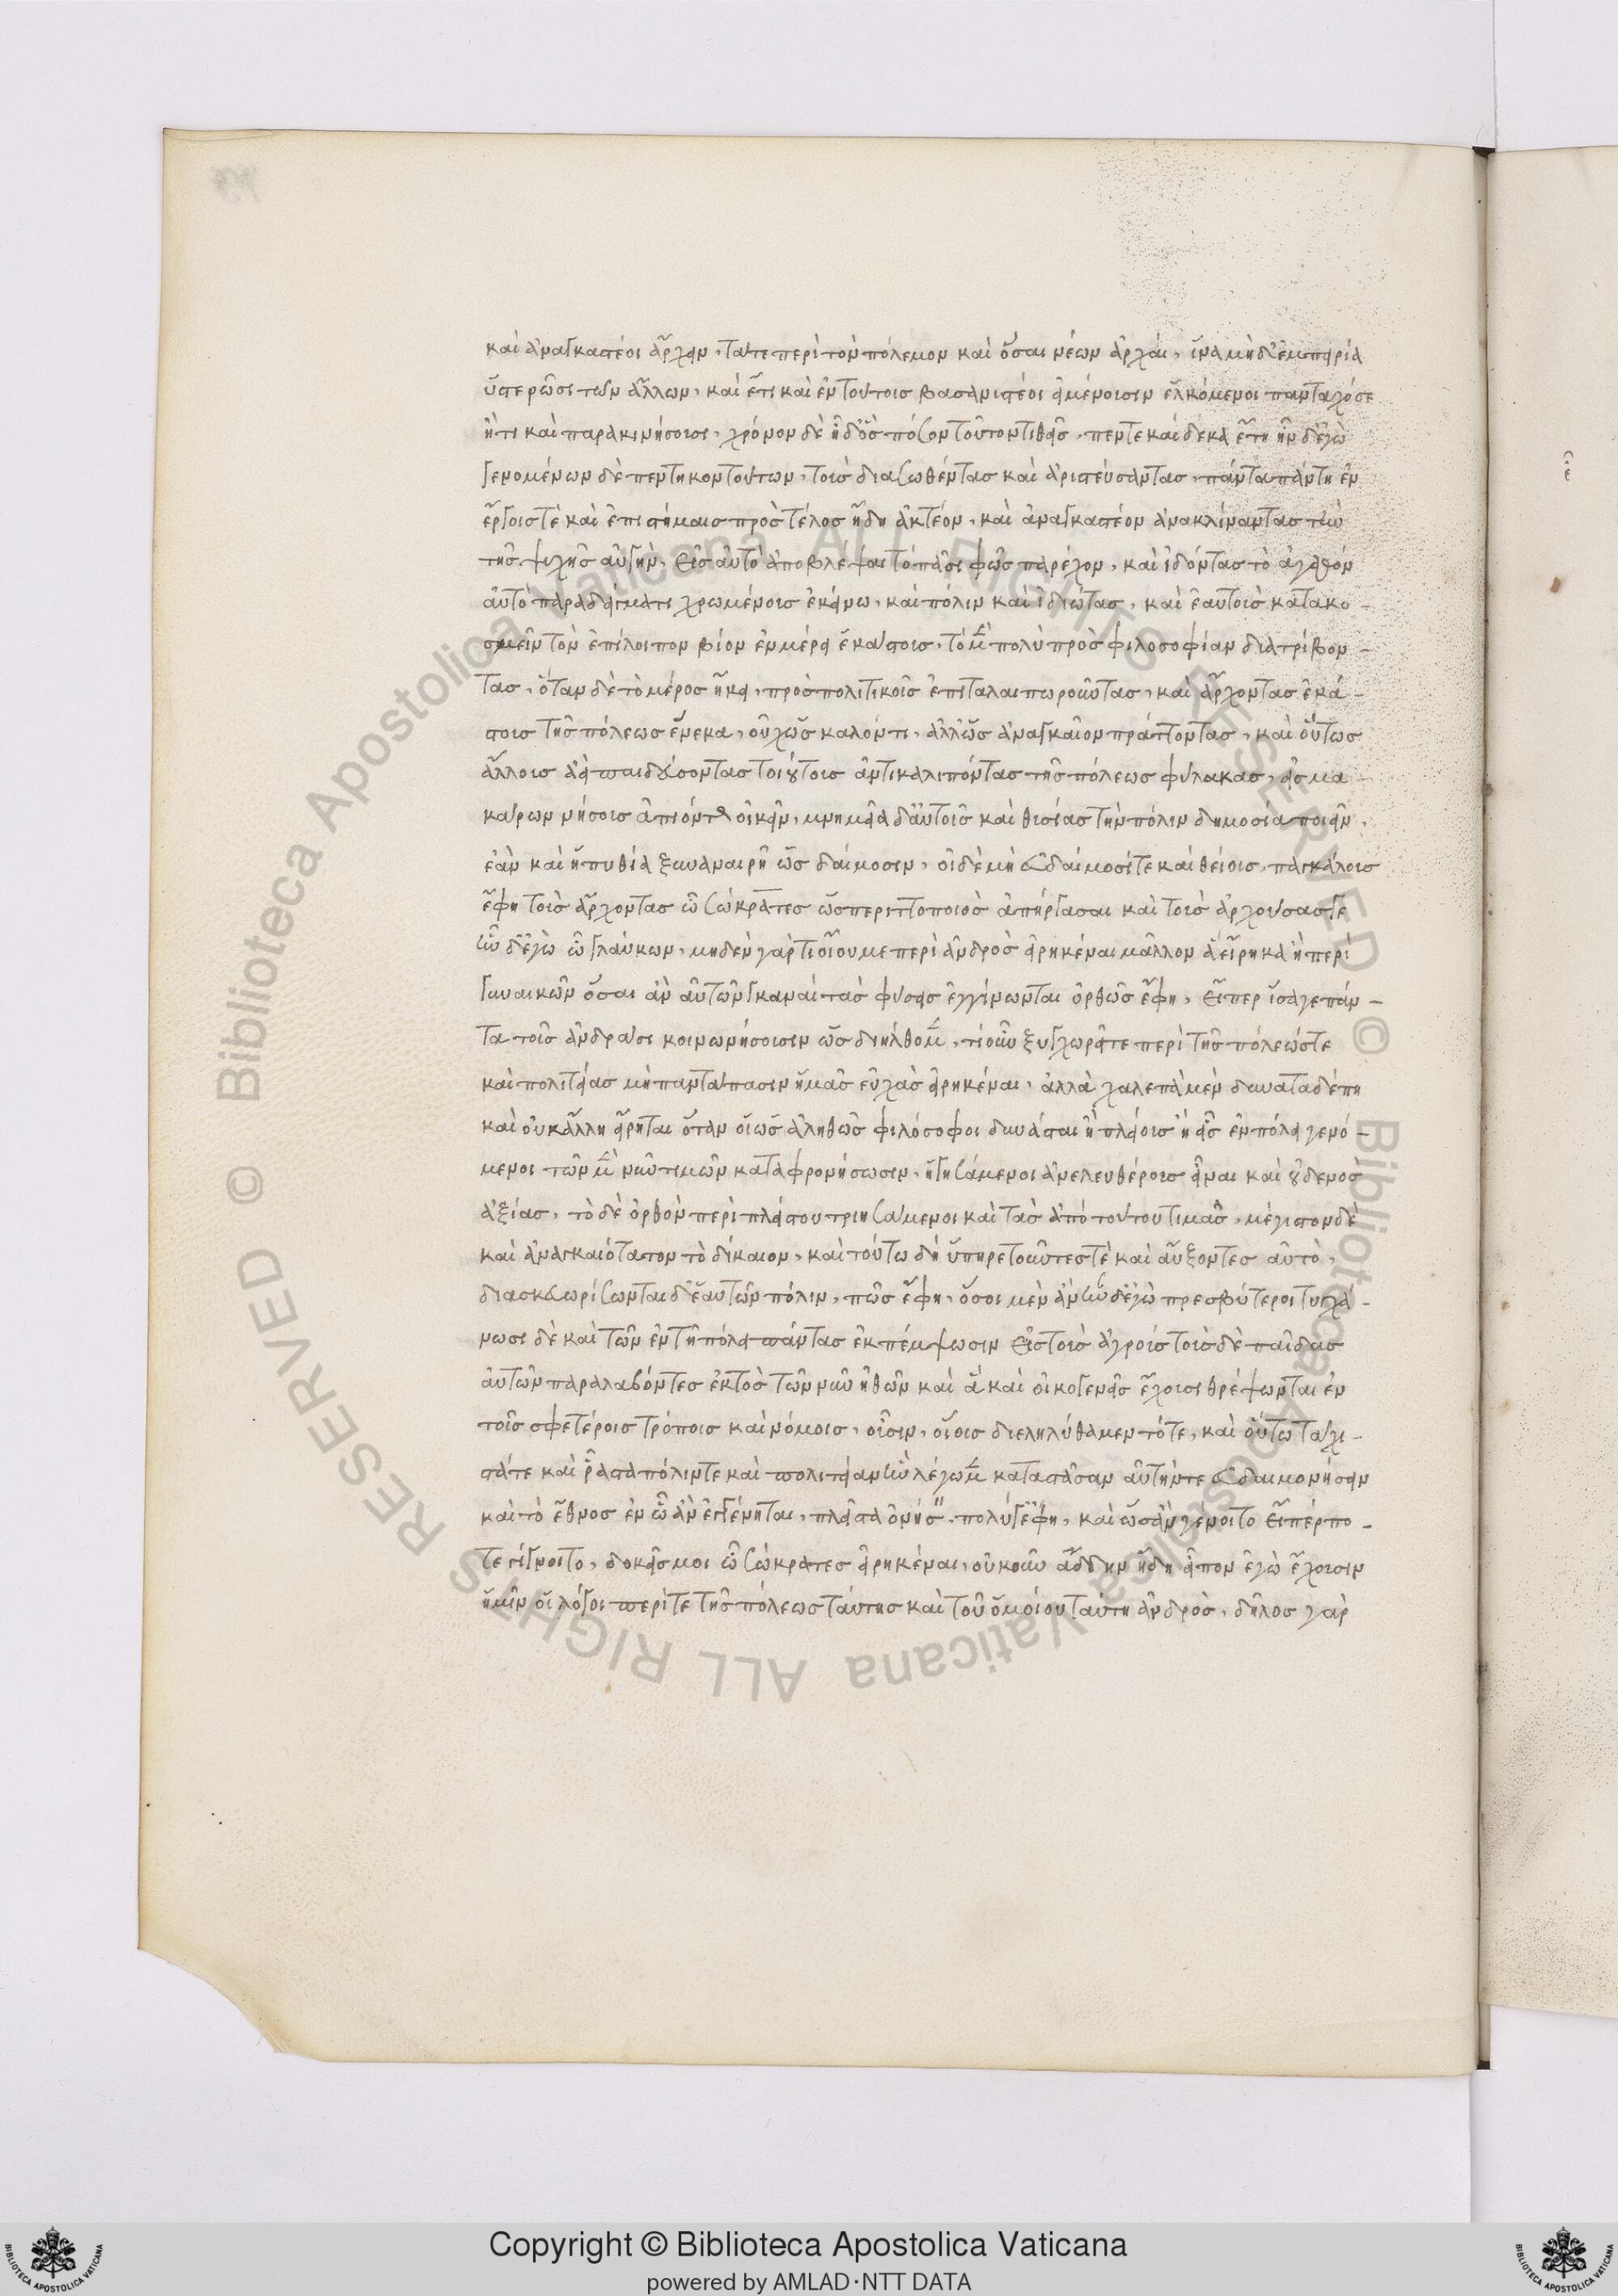 καὶ ἀναγκαστέοι ἄρχειν, τά τε περὶ τὸν πόλεμον καὶ ὅσαι νέων ἀρχαί, ἵνα μηδ' ἐμπειρία
ὑστερῶσι τῶν ἄλλων, καὶ ἔτι καὶ ἐν τούτοις βασανιστέοι εἰ μένουσιν ἑλκόμενοι πανταχόσε
ἤ τι καὶ παρακινήσουσι, χρόνον δὲ ἦ δ' ὃς πόσον τοῦτον τιθεῖς, πεντεκαίδεκα ἔτη ἦν δ' ἐγὼ
γενομένων δὲ πεντηκοντούτων, τοὺς διασωθέντας καὶ ἀριστεύσαντας, πάντα πάντη ἐν
ἔργοις τὲ καὶ ἐπιστήμαις πρὸς τέλος ἤδη ἀκτέον, καὶ ἀναγκαστέον ἀνακλίναντας τὴν
τῆς ψυχῆς αὐγὴν, εἰς αὐτὸ ἀποβλέψαι τὸ πᾶσι φῶς παρέχον, καὶ ἰδόντας τὸ ἀγαθὸν
αὐτὸ παραδείγματι χρωμένους ἐκείνω, καὶ πόλιν καὶ ἰδιώτας, καὶ ἑαυτοὺς κατακο-
σμεῖν τὸν ἐπίλοιπον βίον ἐν μέρει ἑκάστους, τὸ μὲν πολὺ πρὸς φιλοσοφίαν διατρίβον-
τας, ὅταν δὲ τὸ μέρος ἥκει, πρὸς πολιτικοῖς ἐπιταλαιπωροῦντας, καὶ ἄρχοντας ἑκά-
στους τῆς πόλεως ἕνεκα, οὐχ ὡς καλόν τι, ἀλλ' ὡς ἀναγκαῖον πράττοντας, καὶ οὕτως
ἄλλους ἀεὶ παιδεύσοντας τοιούτους ἀντικαλιπόντας τῆς πόλεως φύλακας, εἰς μα-
κάρων νήσους ἀπιόντας οἰκεῖν, μνημεῖα δ' αὐτοῖς καὶ θυσίας τὴν πόλιν δημοσία ποιεῖν,
ἐὰν καὶ ἡ πυθία ξυναναιρῆ ὡς δαίμοσιν, οἱ δὲ μὴ εὐδαίμοσί τε καὶ θείοις, παγκάλους
ἔφη τοὺς ἄρχοντας ὦ σώκρατες ὥσπερ ἀνδριαντοποιὸς ἀπήργασαι καὶ τοὺς ἀρχούσας γε
ἦν δ' ἐγὼ ὦ γλαύκων, μηδὲν γάρ τι οἴου με περὶ ἀνδρὸς εἰρηκέναι μᾶλλον ἃ εἴρηκα ἢ περὶ
γυναικῶν ὅσαι ἂν αὐτῶν ἱκαναὶ τὰς φύσεις ἐγγίνωνται ὀρθῶς ἔφη, εἴπερ ἴσα γε πάν-
τα τοῖς ἀνδράσι κοινωνήσουσιν ὡς διήλθομεν, τί οὖν ξυγχωρεῖτε περὶ τῆς πόλεώς τε
καὶ πολιτείας μὴ παντάπασιν ἡμᾶς εὐχὰς εἰρηκέναι, ἀλλὰ χαλεπὰ μὲν δυνατὰ δέ πη
καὶ οὐκ ἄλλη εἴρηται ὅταν οἱ ὡς ἀληθῶς φιλόσοφοι δυνάσται ἢ πλείους ἢ εἷς ἐν πόλει γενό-
μενοι τῶν μὲν νῦν τιμῶν καταφρονήσωσιν, ἡγησάμενοι ἀνελευθέρους εἶναι καὶ οὐδενὸς
ἀξίας, τὸ δὲ ὀρθὸν περὶ πλείστου ποιησάμενοι καὶ τὰς ἀπὸ τούτου τιμὰς, μέγιστον δὲ
καὶ ἀναγκαιότατον τὸ δίκαιον, καὶ τούτω δὴ ὑπηρετοῦντες τὲ καὶ αὔξοντες αὐτὸ,
διασκευωρίσωνται δὲ ἑαυτῶν πόλιν, πῶς ἔφη, ὅσοι μὲν ἂν ἦν δ' ἐγὼ πρεσβύτεροι τυγχά-
νωσι δὲ καὶ τῶν ἐν τῆ πόλει πάντας ἐκπέμψωσιν εἰς τοὺς ἀγροὺς τοὺς δὲ παῖδας
αὐτῶν παραλαβόντες ἐκτὸς τῶν νῦν ἠθῶν καὶ ἃ καὶ οἱ κογενεῖς ἔχουσι θρέψωνται ἐν
τοῖς σφετέροις τρόποις καὶ νόμοις, οὖσιν, οἵοις διεληλύθαμεν τότε, καὶ οὕτω τάχι-
στά τε καὶ ῥᾶστα πόλιν τε καὶ πολιτείαν ἣν λέγομεν καταστᾶσαν αὐτήν τε εὐδαιμονήσειν
καὶ τὸ ἔθνος ἐν ὧ ἂν ἐγγένηται, πλεῖστα ὀνήσειν, πολύ γ' ἔφη, καὶ ὡς ἂν γένοιτο εἴπέρ πο-
τε γίγνοιτο, δοκεῖς μοι ὦ σώκρατες εἰρηκέναι, οὐκοῦν ἄδδην ἤδη εἶπον ἐγὼ ἔχουσιν
ἡμῖν οἱ λόγοι περί τε τῆς πόλεως ταύτης καὶ τοῦ ὁμοίου ταύτη ἀνδρὸς, δῆλος γάρ
Copyright © Biblioteca Apostolica Vaticana
powered by AMLAD·NTT DATA